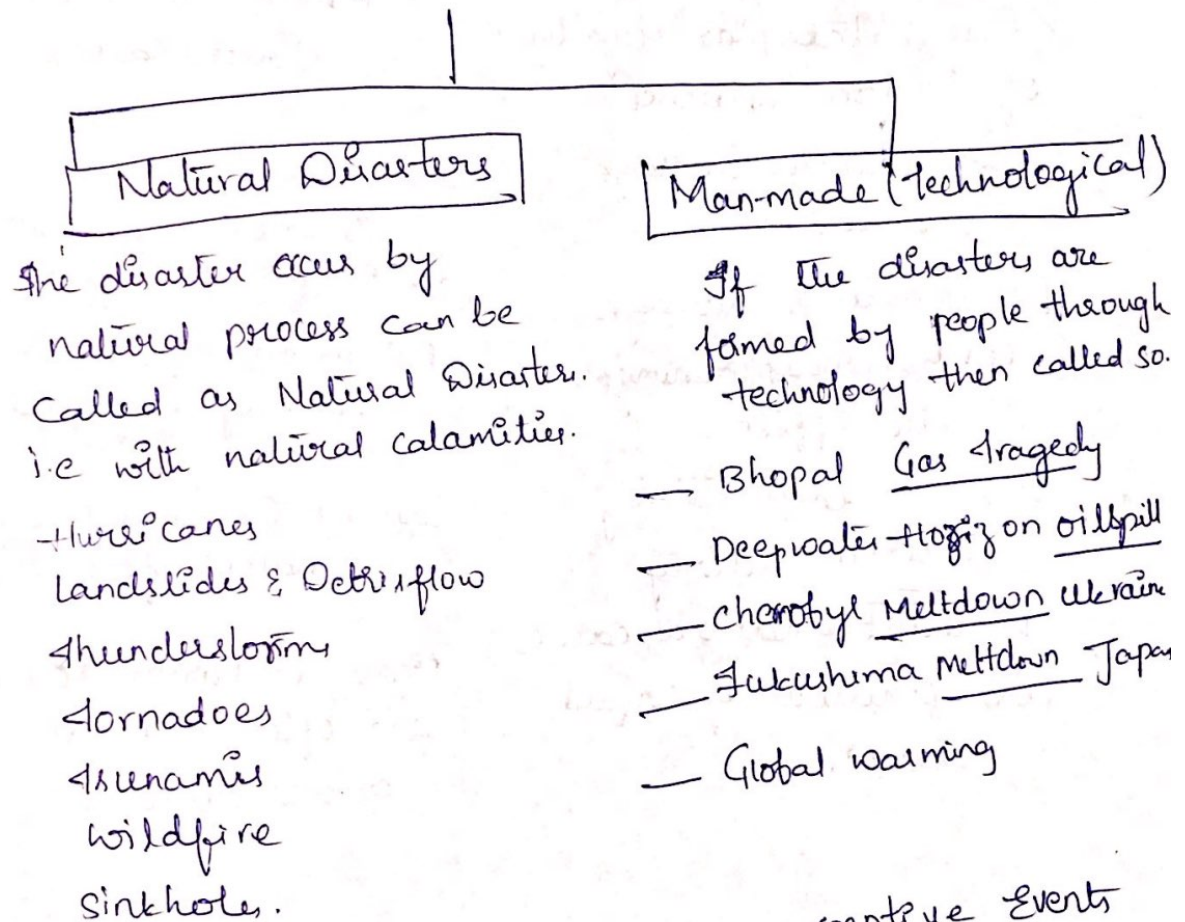 Natural Disasters
The disaster occus by
natural process can be
Called as Natural Disaster.
i.e with natural calamities.
Hurricanes
Landslides & Debris flow
Thunderstorms
Tornadoes
Tsunamis
Wildfire
Sinkholes.
Man-made (technological)
If the disasters are
formed by people through
technology then called so.
— Bhopal Gas tragedy
— Deepwater Horizon oilspill
— Chernobyl Meltdown Ukraine
— Fukushima Meltdown Japan
— Global warming
Events